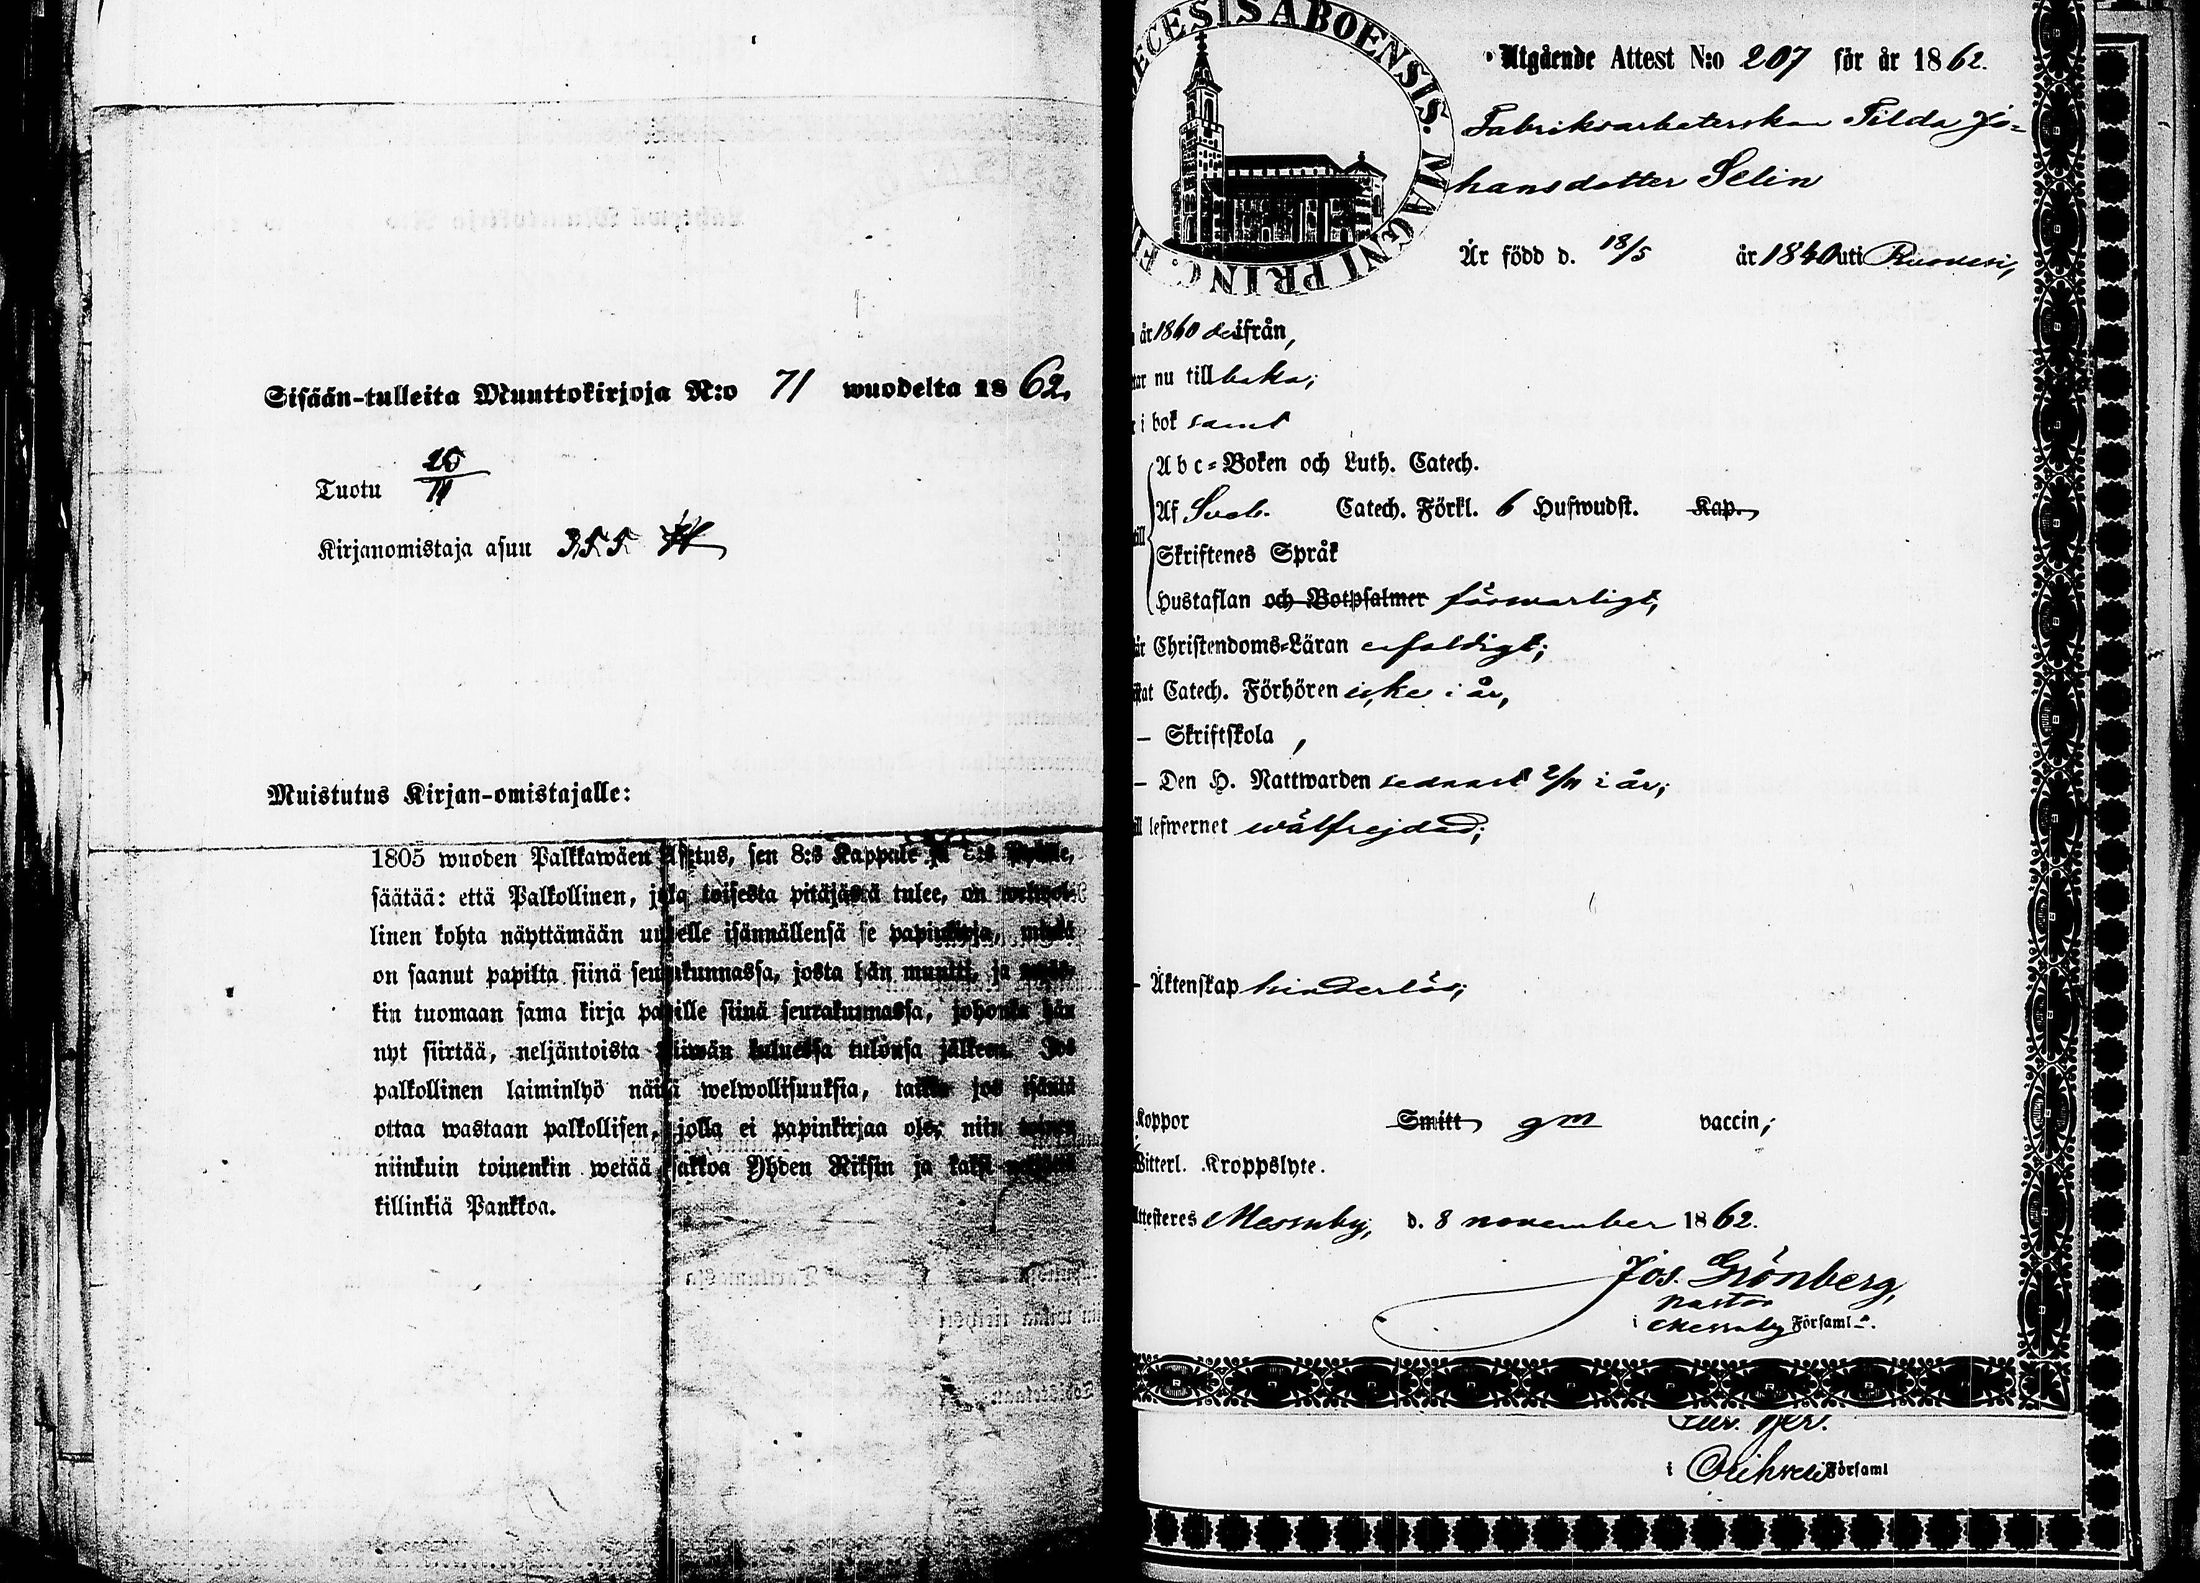 Sisään-tulleita Muuttokirjoja N:o 71 wuodelta 1862.
Tuotu 20/11
Kirjanomistaja asuu 355
Muistutus Kirjan-omistajalle:
1805 wuoden Palkkawäen Asetus, sen 8:s Kappale ja
säätää: että Palkollinen, joka toisesta pitäjästä tulee, on welwol-
linen kohta näyttämään uudelle isännällensä se papinkirja, minkä
on saanut papilta siinä seurakunnassa, josta hän muutti, ja
kin tuomaan sama kirja papille siinä seurakunnassa, johonka hän
nyt siirtää, neljäntoista päiwän kuluessa tulonsa jälkeen. Jos
palkollinen laiminlyö näitä welwollisuuksia, taikka jos isäntä
ottaa wastaan palkollisen, jolla ei papinkirjaa ole, niin toinen
niinkuin toinenkin wetää sakkoa Yhden Riksin ja kaksi
killinkiä Pankkoa.
ECESIS ABOENSIS. MAGNI PRINC. FI
Utgående Attest N:o 207 för år 1862.
Fabriksarbeterskan Tilda Jo-
hansdotter Selin
Är född d. 18/5 år 1840 uti Ruovesi,
år 1860 ifrån,
nu tillbaka;
i bok samt
Abc-Boken och Luth. Catech.
Af Sveb. Catech. Förkl. 6 Hufwudst. Kap.
Skriftenes Språk
Hustaflan och Botpsalmer försvarligt,
Christendoms-Läran enfaldigt;
Catech. Förhören icke i år,
– Skriftskola,
– Den H. Nattwarden sednast 2/11 i år;
lefwernet wälfrejdad;
– Äktenskap hinderlös;
Koppor Smitt gm vaccin;
Witterl. Kroppslyte.
Attesteres Messuby, d. 8 november 1862.
Jos. Grönberg,
Pastor
i Messuby Församl.
i Orihvesi Församl